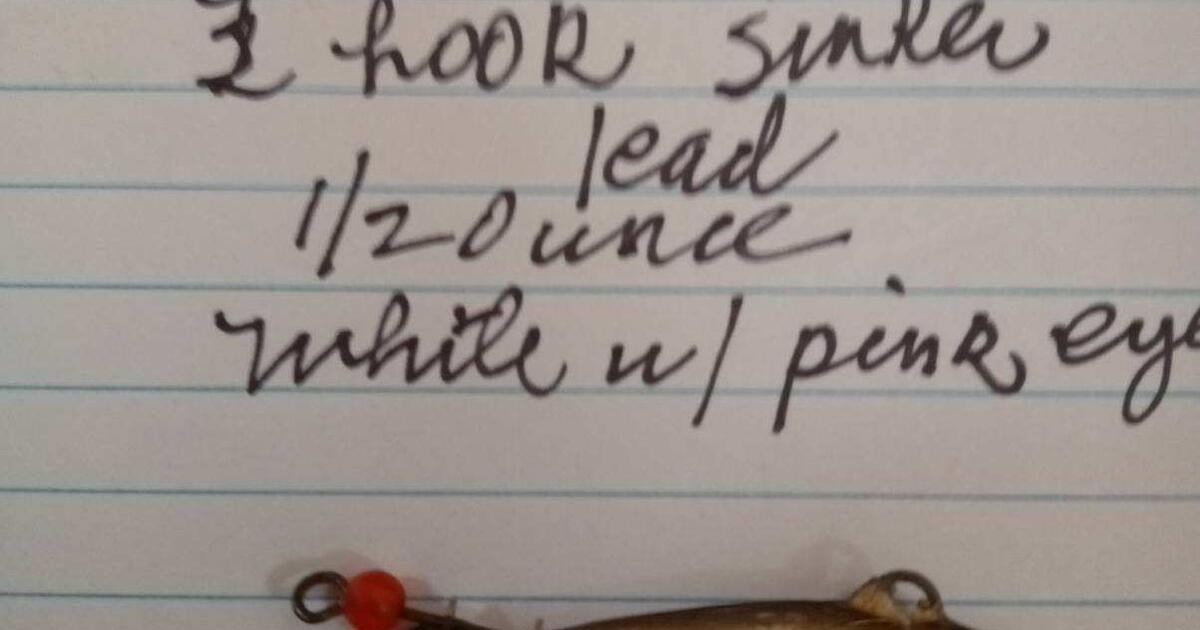 hook sinker
lead
1/2 ounce
white w/ pink eye